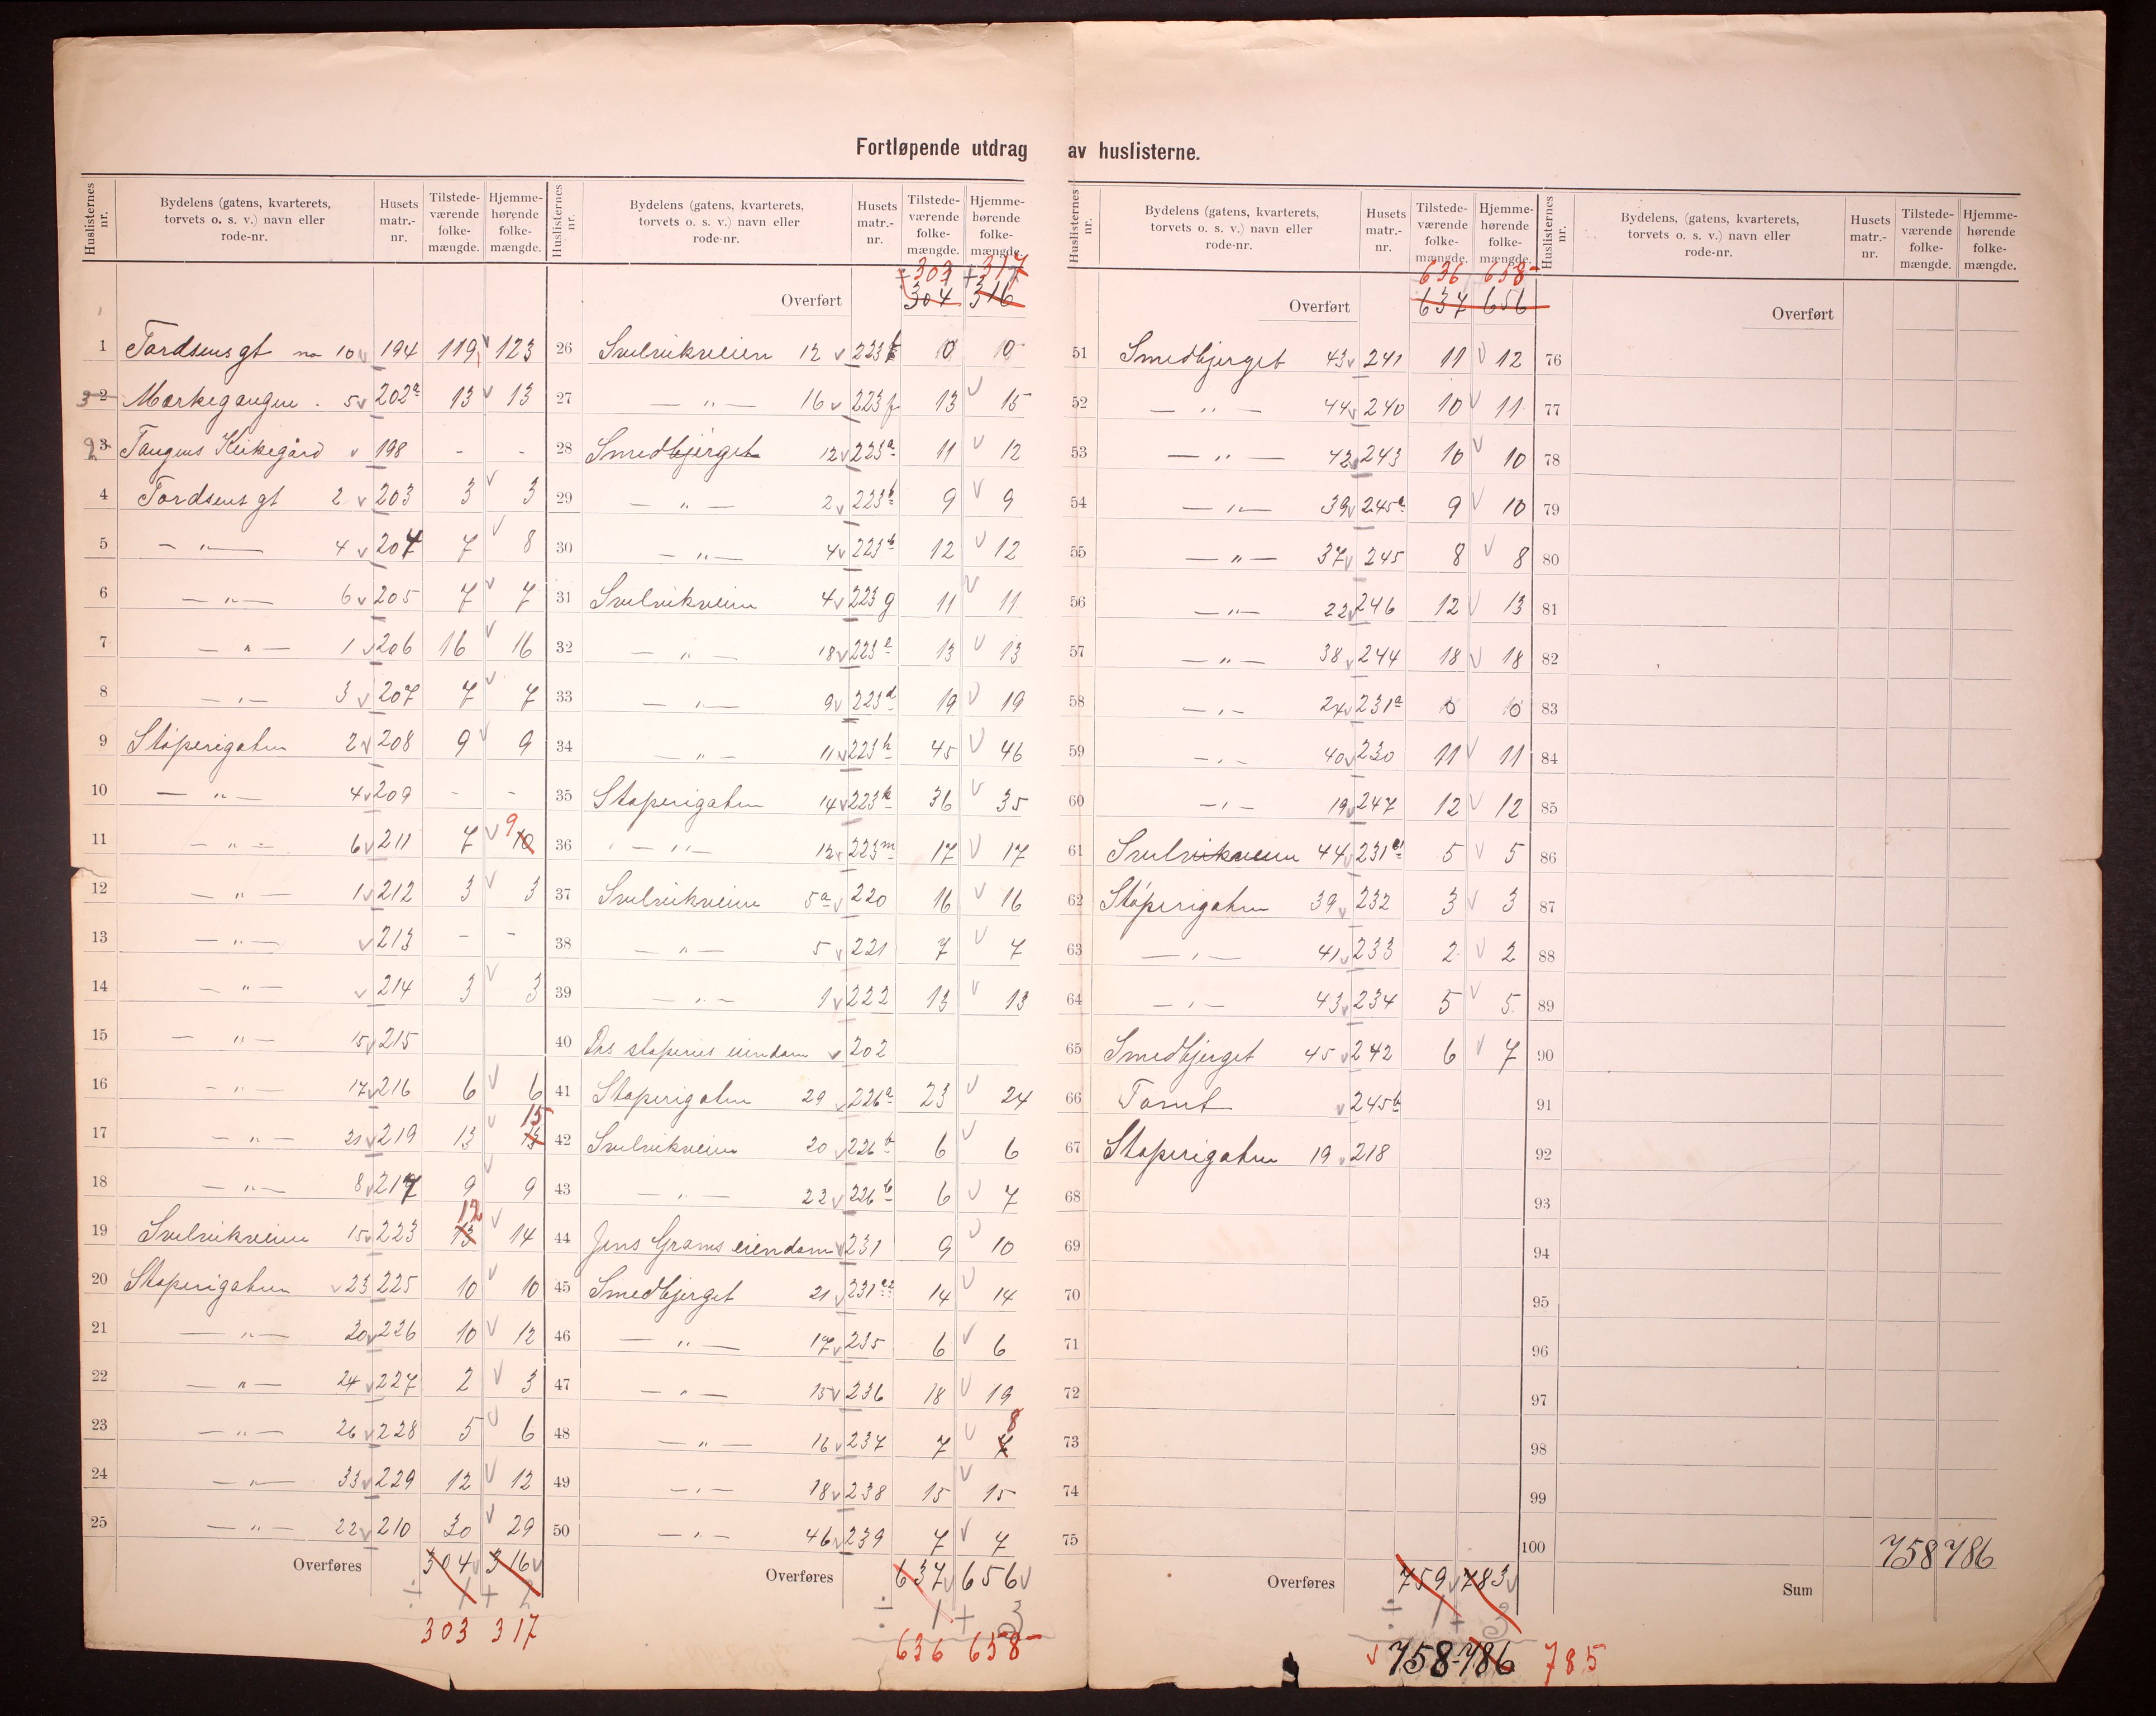 Fortløpende utdrag av huslisterne.
Huslisternes nr. | Bydelens (gatens, kvarterets, torvets o. s. v.) navn eller rode-nr. | Husets matr.-nr. | Tilstede-værende folke-mængde. | Hjemme-hørende folke-mængde.
1 Tordsens gt no 10 v 194 119 v 123
3 2 Markegangen 5 v 202a 13 v 13
2 3 Tangens Kirkegård v 198 - -
4 Tordsens gt 2 v 203 3 v 3
5 — " — 4 v 204 7 v 8
6 — " — 6 v 205 7 v 7
7 — " — 1 v 206 16 v 16
8 — " — 3 v 207 7 v 7
9 Støperigaten 2 v 208 9 v 9
10 — " — 4 v 209 - -
11 — " — 6 v 211 7 v 10 9
12 — " — 1 v 212 3 v 3
13 — " — v 213 - -
14 — " — v 214 3 v 3
15 — " — 15 v 215
16 — " — 17 v 216 6 v 6
17 — " — 21 v 219 13 v 13 15
18 — " — 8 v 217 9 v 9
19 Svelvikveien 15 v 223 13 12 v 14
20 Støperigaten v 23 225 10 v 10
21 — " — 20 v 226 10 v 12
22 — " — 24 v 227 2 v 3
23 — " — 26 v 228 5 v 6
24 — " — 33 v 229 12 v 12
25 — " — 22 v 210 30 v 29
Overføres 304 v 316 v
÷ 1 + 2
303 317
Huslisternes nr. | Bydelens (gatens, kvarterets, torvets o. s. v.) navn eller rode-nr. | Husets matr.-nr. | Tilstede-værende folke-mængde. | Hjemme-hørende folke-mængde.
÷ 303 + 317
Overført 304 316
26 Svelvikveien 12 v 223 10 10
27 — " — 16 v 223f 13 v 15
28 Smedbjerget 12 v 223a 11 v 12
29 — " — 2 v 223b 9 v 9
30 — " — 4 v 223b 12 v 12
31 Svelvikveien 4 v 223g 11 v 11
32 — " — 18 v 223e 13 v 13
33 — " — 9 v 223d 19 v 19
34 — " — 11 v 223h 45 v 46
35 Støperigaten 14 v 223k 36 v 35
36 — " — 12 v 223m 17 v 17
37 Svelvikveien 5a v 220 16 v 16
38 — " — 5 v 221 7 v 7
39 — " — 1 v 222 13 v 13
40 Drs støperies eiendom v 202
41 Støperigaten 29 v 226a 23 v 24
42 Svelvikveien 20 v 226b 6 v 6
43 — " — 22 v 226b 6 v 7
44 Jens Grams eiendom v 231 9 v 10
45 Smedbjerget 21 v 231a2 14 v 14
46 — " — 17 v 235 6 v 6
47 — " — 15 v 236 18 v 19
48 — " — 16 v 237 7 v 7 8
49 — " — 18 v 238 15 v 15
50 — " — 46 v 239 7 v 7
Overføres 637 v 656 v
÷ 1 + 2
636 658
Huslisternes nr. | Bydelens (gatens, kvarterets, torvets o. s. v.) navn eller rode-nr. | Husets matr.-nr. | Tilstede-værende folke-mængde. | Hjemme-hørende folke-mængde.
636 658
Overført 637 656
51 Smedbjerget 43 v 241 11 v 12
52 — " — 44 v 240 10 v 11
53 — " — 42 v 243 10 v 10
54 — " — 39 v 245a 9 v 10
55 — " — 37 v 245 8 v 8
56 — " — 22 v 246 12 v 13
57 — " — 38 v 244 18 v 18
58 — " — 24 v 231a
59 — " — 40 v 230 11 v 11
60 — " — 19 v 247 12 v 12
61 Svelvikveien 44 v 231 5 v 5
62 Støperigaten 39 v 232 3 v 3
63 — " — 41 v 233 2 v 2
64 — " — 43 v 234 5 v 5
65 Smedbjerget 45 v 242 6 v 7
66 Tomt v 245b
67 Støperigaten 19 v 218
68
69
70
71
72
73
74
75
Overføres 759 v 783 v
÷ 1 +
v 758 786 785
Huslisternes nr. | Bydelens, (gatens, kvarterets, torvets o. s. v.) navn eller rode-nr. | Husets matr.-nr. | Tilstede-værende folke-mængde. | Hjemme-hørende folke-mængde.
Overført
76
77
78
79
80
81
82
83
84
85
86
87
88
89
90
91
92
93
94
95
96
97
98
99
100
758 786
Sum